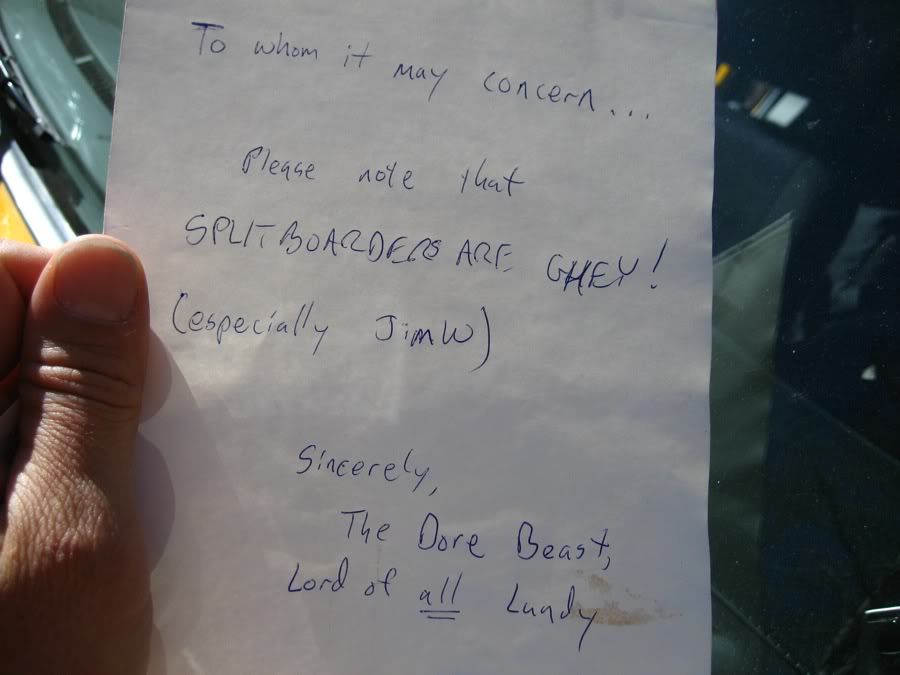 To whom it may concern...
Please note that
SPLITBOARDERS ARE GHEY!
(especially JimW)
Sincerely,
The Dore Beast,
Lord of all Lundy